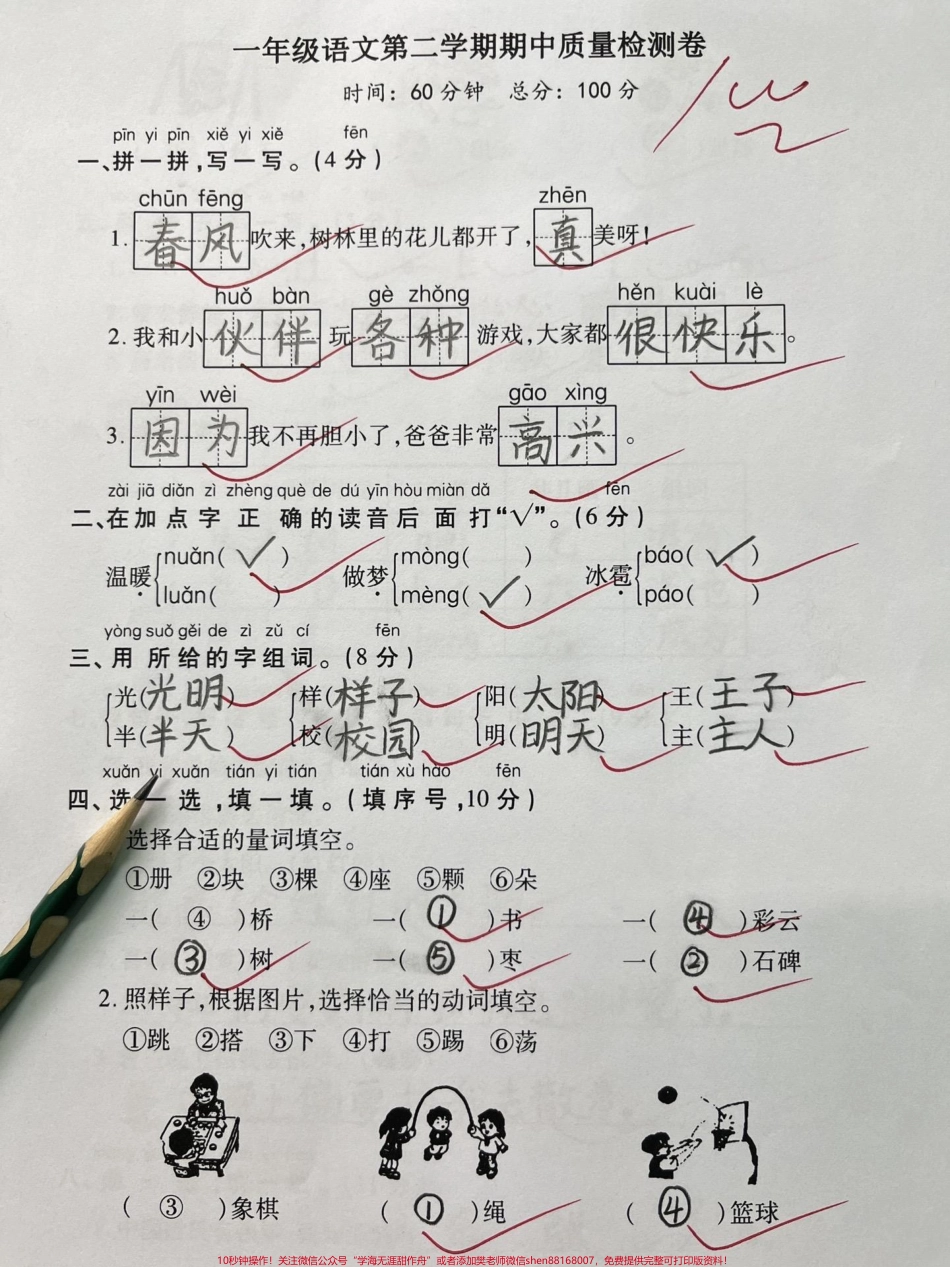 一年级语文第二学期期中质量检测卷
时间：60分钟 总分：100分
pīn yi pīn xiě yi xiě fēn
一、拼一拼，写一写。（4分）
chūn fēng zhēn
1. 春风吹来，树林里的花儿都开了，真美呀！
huǒ bàn gè zhǒng hěn kuài lè
2. 我和小伙伴玩各种游戏，大家都很快乐。
yīn wèi gāo xìng
3. 因为我不再胆小了，爸爸非常高兴。
zài jiā diǎn zì zhèng què de dú yīn hòu miàn dǎ fēn
二、在加点字正确的读音后面打“√”。（6分）
温暖 nuǎn（√） 做梦 mòng（ ） 冰雹 báo（√）
luǎn（ ） mèng（√） páo（ ）
yòng suǒ gěi de zì zǔ cí fēn
三、用所给的字组词。（8分）
光（光明） 样（样子） 阳（太阳） 王（王子）
半（半天） 校（校园） 明（明天） 主（主人）
xuǎn yi xuǎn tián yi tián tián xù hào fēn
四、选一选，填一填。（填序号，10分）
选择合适的量词填空。
①册 ②块 ③棵 ④座 ⑤颗 ⑥朵
一（④）桥 一（①）书 一（④）彩云
一（③）树 一（⑤）枣 一（②）石碑
2. 照样子，根据图片，选择恰当的动词填空。
①跳 ②搭 ③下 ④打 ⑤踢 ⑥荡
（③）象棋 （①）绳 （④）篮球
10秒钟操作！关注微信公众号“学海无涯甜作舟”或者添加樊老师微信shen88168007，免费提供完整可打印版资料！